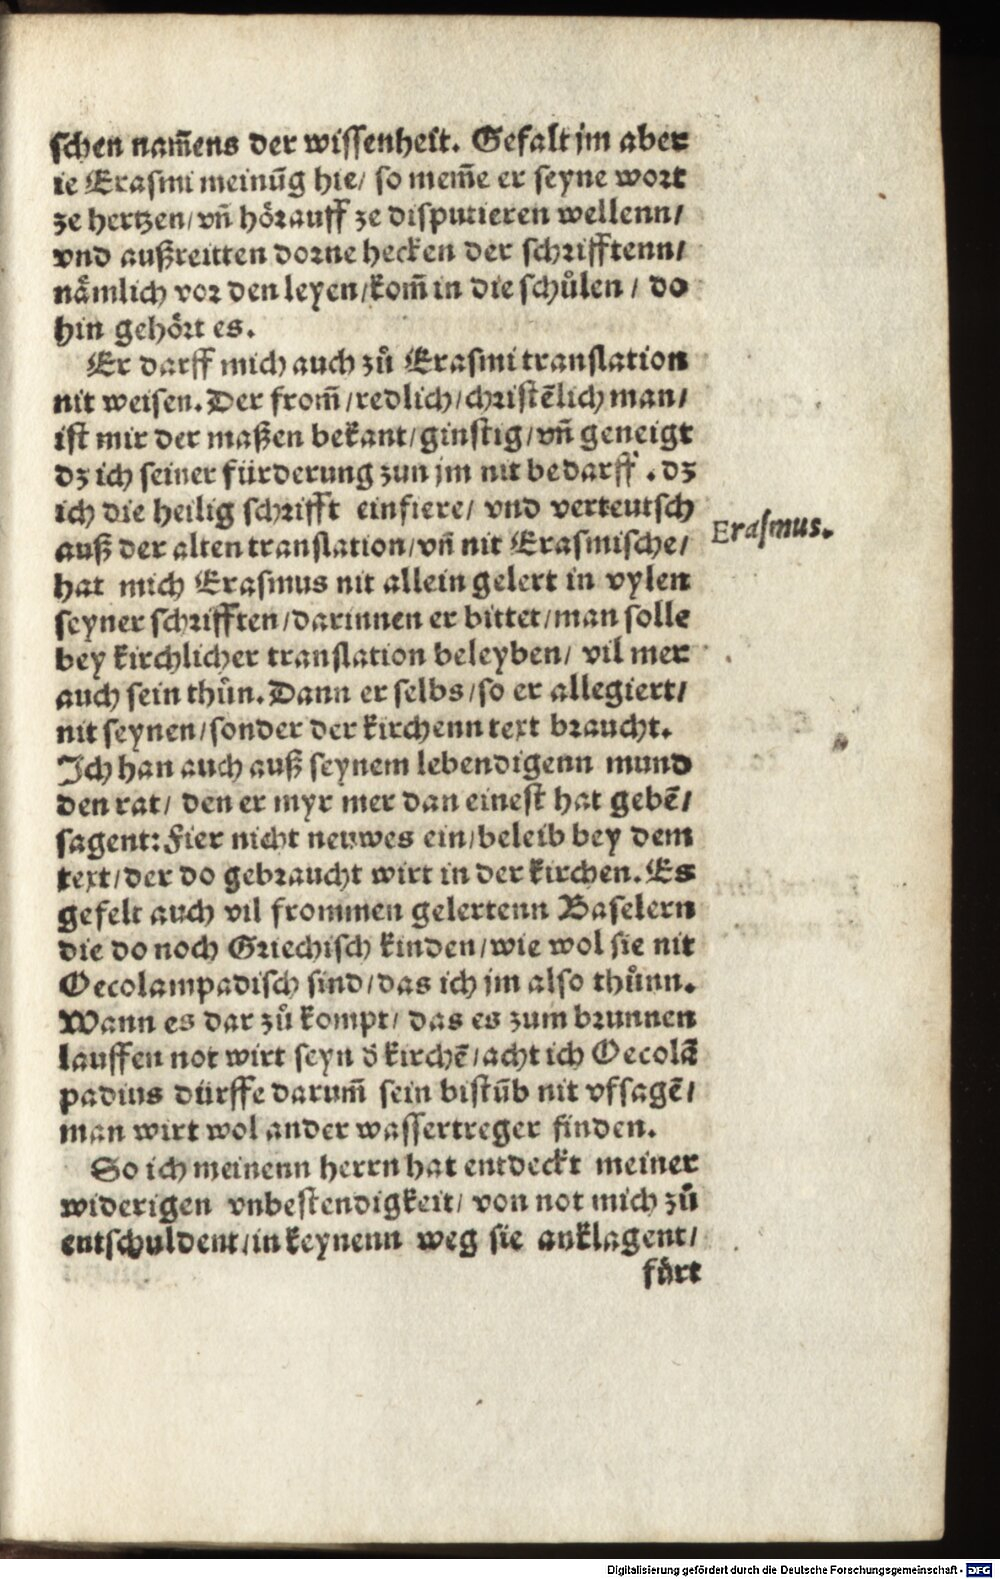 schen nam̃ens der wissenheit. Gefalt jm aber
ie Erasmi meinūg hie/ so nem̃e er seyne wort
ze hertzen/ vn̄ hör auff ze disputieren wellenn/
vnd außreitten dorne hecken der schrifftenn/
nämlich vor den leyen/kom̃ in die schůlen / do
hin gehört es.
Er darff mich auch zů Erasmi translation
nit weisen. Der from̃/redlich/christēlich man/
ist mir der maßen bekant/ginstig/vn̄ geneigt
dz ich seiner fürderung zun jm nit bedarff. dz
ich die heilig schrifft einfiere/ vnd verteutsch
Erasmus.
auß der alten translation/vn̄ nit Erasmische/
hat mich Erasmus nit allein gelert in vylen
seyner schrifften/darinnen er bittet/man solle
bey kirchlicher translation beleyben/ vil mer
auch sein thůn. Dann er selbs/so er allegiert/
nit seynen/sonder der kirchenn text braucht.
Ich han auch auß seynem lebendigenn mund
den rat/ den er myr mer dan einest hat gebē/
sagent: Fier nicht neuwes ein/beleib bey dem
text/der do gebraucht wirt in der kirchen. Es
gefelt auch vil frommen gelertenn Baselern
die do noch Griechisch kinden/wie wol sie nit
Oecolampadisch sind/das ich jm also thůnn.
Wann es dar zů kompt/ das es zum brunnen
lauffen not wirt seyn d̄ kirchē/acht ich Oecolā
padius dürffe darum̃ sein bistūb nit vfsagē/
man wirt wol ander wassertreger finden.
So ich meinenn herrn hat entdeckt meiner
widerigen vnbestendigkeit/ von not mich zů
entschuldent/in keynenn weg sie anklagent/
fürt
Digitalisierung gefördert durch die Deutsche Forschungsgemeinschaft - DFG